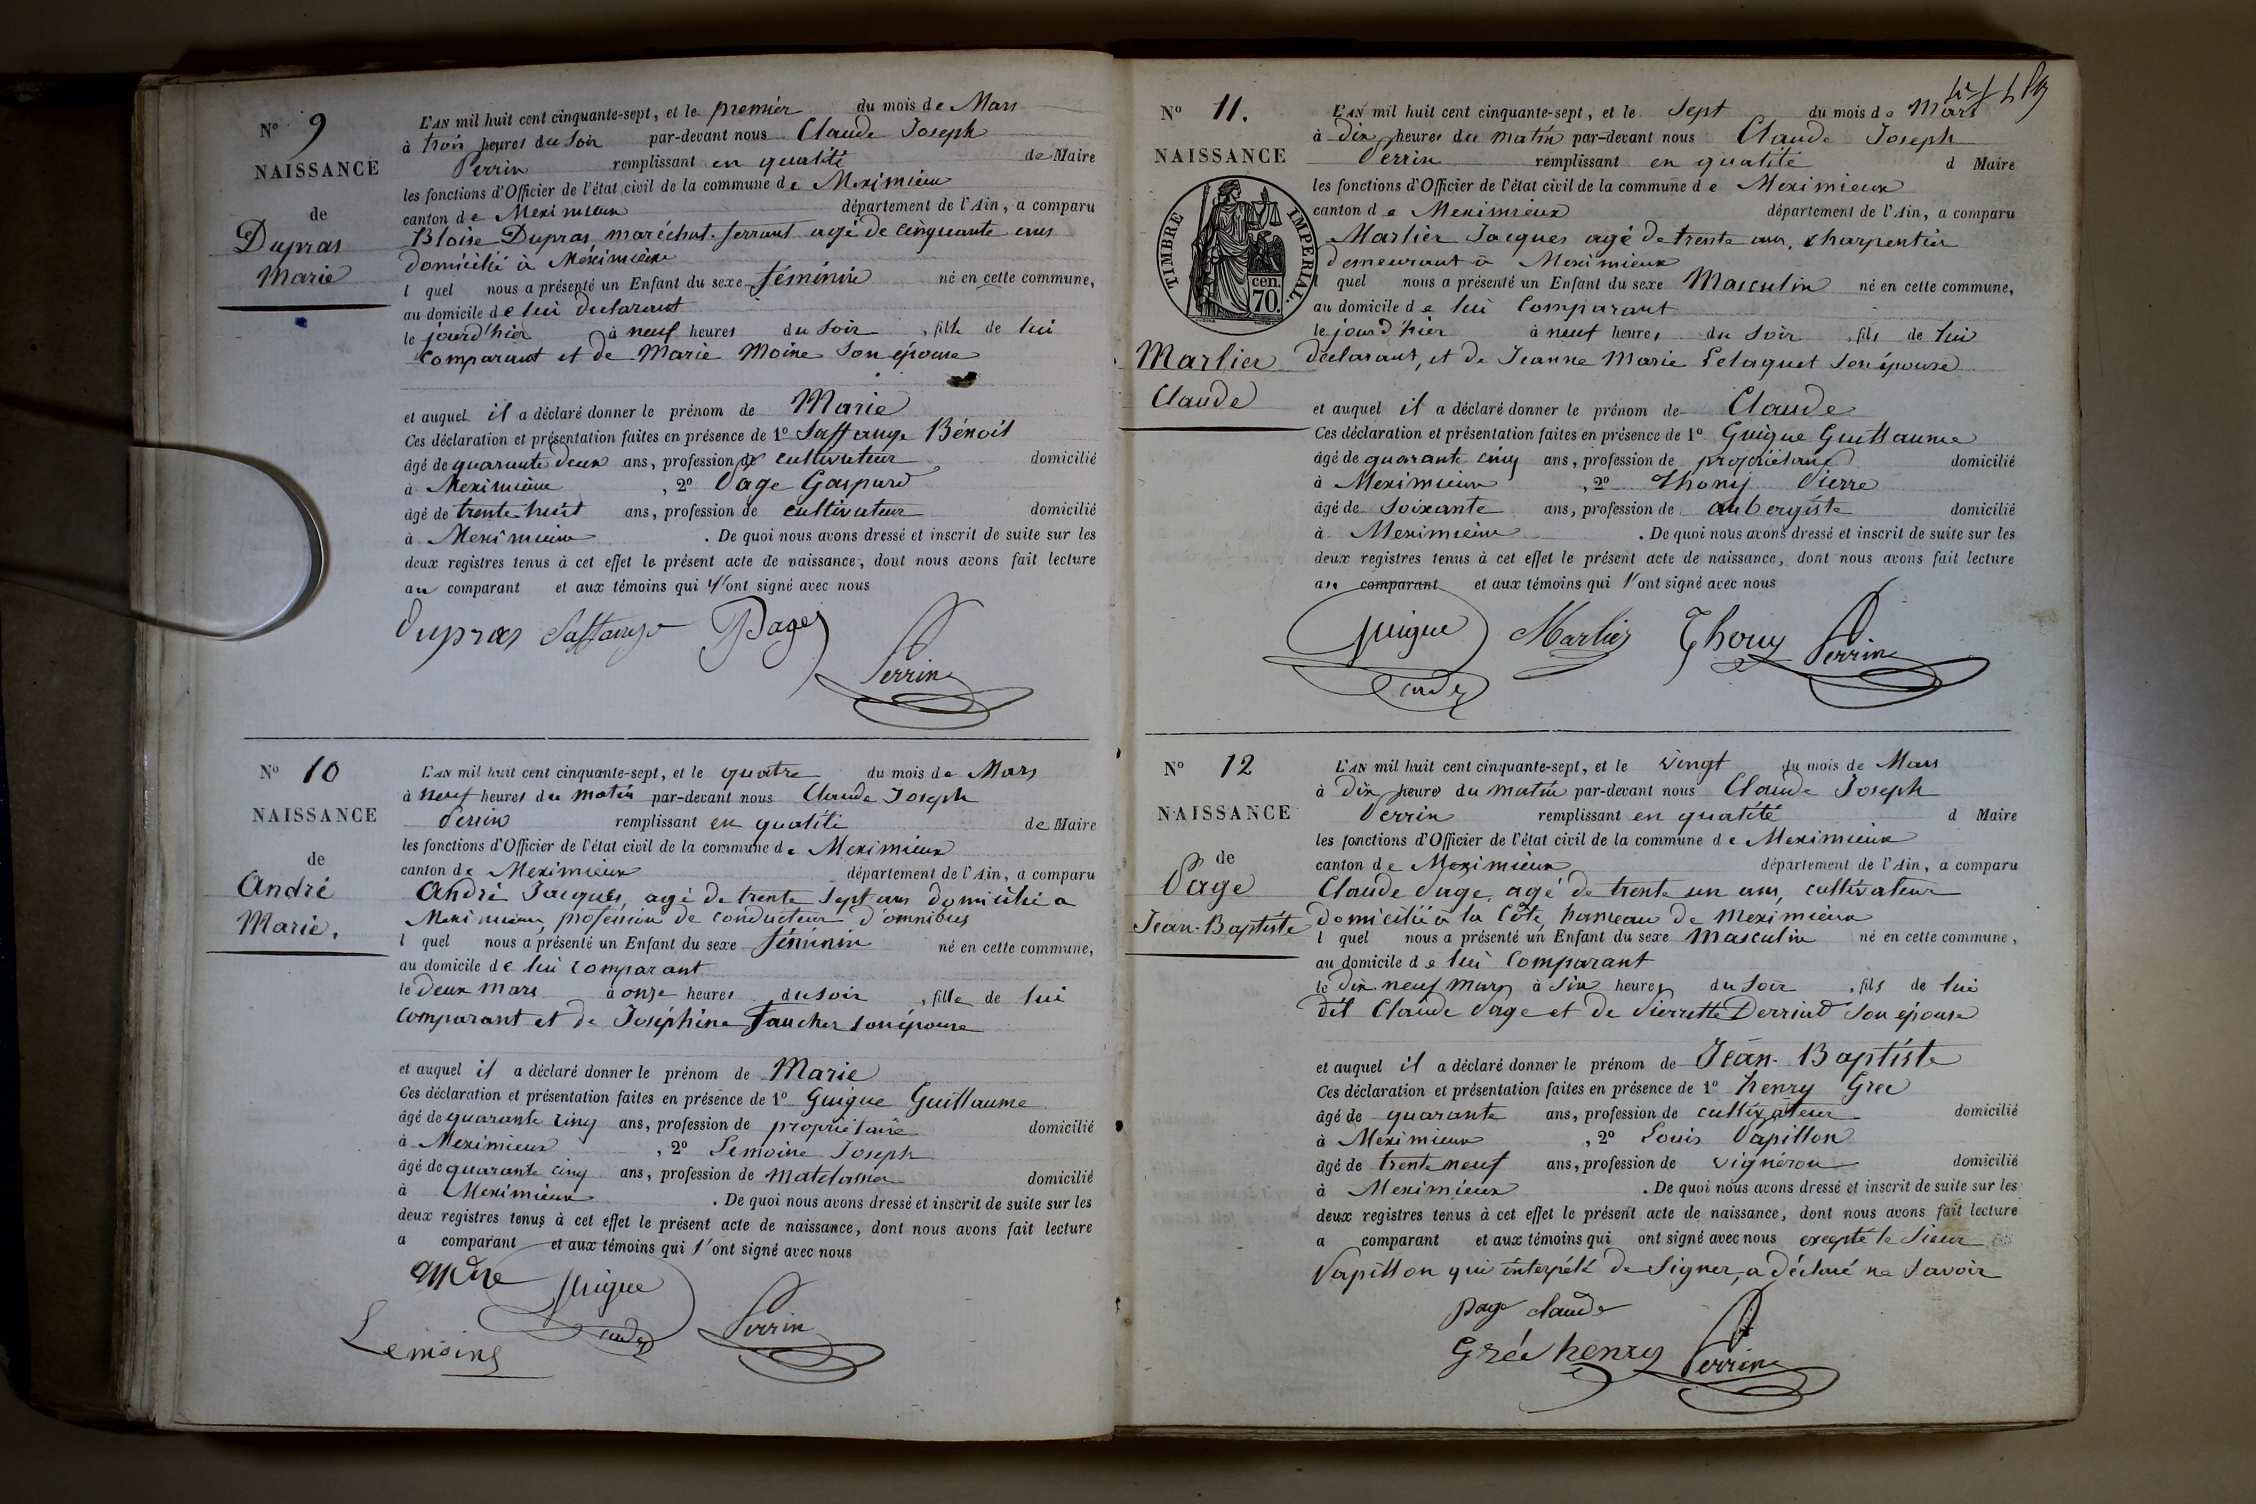 N° 9
NAISSANCE
de
Dupras
Marie
L'AN mil huit cent cinquante-sept, et le premier du mois de Mars
à trois heures du soir par-devant nous Claude Joseph
Perrin remplissant en qualité de Maire
les fonctions d'Officier de l'état civil de la commune de Meximieux
canton de Meximieux département de l'Ain, a comparu
Blaise Dupras maréchal-ferrant agé de cinquante ans
domicilié à Meximieux
l quel nous a présenté un Enfant du sexe féminin né en cette commune,
au domicile de lui déclarant
le jourd'hier à neuf heures du soir, fille de lui
comparant et de Marie Moine son épouse
et auquel il a déclaré donner le prénom de Marie
Ces déclaration et présentation faites en présence de 1° Saffange Bénoit
âgé de quarante deux ans, profession de cultivateur domicilié
à Meximieux, 2° Page Gaspard
âgé de trente huit ans, profession de cultivateur domicilié
à Meximieux. De quoi nous avons dressé et inscrit de suite sur les
deux registres tenus à cet effet le présent acte de naissance, dont nous avons fait lecture
au comparant et aux témoins qui l'ont signé avec nous
Dupras Saffange Page
Perrin
N° 10
NAISSANCE
de
André
Marie.
L'AN mil huit cent cinquante-sept, et le quatre du mois de Mars
à neuf heures du matin par-devant nous Claude Joseph
Perrin remplissant en qualité de Maire
les fonctions d'Officier de l'état civil de la commune de Meximieux
canton de Meximieux département de l'Ain, a comparu
André Jacques, agé de trente sept ans domicilié a
Meximieux, profession de conducteur d'omnibus
l quel nous a présenté un Enfant du sexe féminin né en cette commune,
au domicile de lui comparant
le deux mars à onze heures du soir, fille de lui
comparant et de Joséphine Faucher son épouse
et auquel il a déclaré donner le prénom de Marie
Ces déclaration et présentation faites en présence de 1° Guigue Guillaume
âgé de quarante cinq ans, profession de propriétaire domicilié
à Meximieux, 2° Lemoine Joseph
âgé de quarante cinq ans, profession de domicilié
à Meximieux. De quoi nous avons dressé et inscrit de suite sur les
deux registres tenus à cet effet le présent acte de naissance, dont nous avons fait lecture
a comparant et aux témoins qui l'ont signé avec nous
Guigue
Perrin
Lemoine
N° 11.
NAISSANCE
TIMBRE IMPERIAL.
cen.
70.
Marlier
Claude
L'AN mil huit cent cinquante-sept, et le sept du mois de Mars
à dix heures du matin par-devant nous Claude Joseph
Perrin remplissant en qualité d Maire
les fonctions d'Officier de l'état civil de la commune de Meximieux
canton de Meximieux département de l'Ain, a comparu
Marlier Jacques agé de trente ans, charpentier
demeurant à Meximieux
l quel nous a présenté un Enfant du sexe Masculin né en cette commune,
au domicile de lui comparant
le jourd'hier à neuf heures du soir, fils de lui
déclarant, et de Jeanne Marie Pelaquet son épouse
et auquel il a déclaré donner le prénom de Claude
Ces déclaration et présentation faites en présence de 1° Guigue Guillaume
âgé de quarante cinq ans, profession de propriétaire domicilié
à Meximieux, 2° Thony Pierre
âgé de soixante ans, profession de aubergiste domicilié
à Meximieux. De quoi nous avons dressé et inscrit de suite sur les
deux registres tenus à cet effet le présent acte de naissance, dont nous avons fait lecture
au comparant et aux témoins qui l'ont signé avec nous
Guigue Marlier Thony Perrin
N° 12
NAISSANCE
de
Page
Jean-Baptiste
L'AN mil huit cent cinquante-sept, et le vingt du mois de Mars
à dix heures du matin par-devant nous Claude Joseph
Perrin remplissant en qualité d Maire
les fonctions d'Officier de l'état civil de la commune de Meximieux
canton de Meximieux département de l'Ain, a comparu
Claude Page, agé de trente un ans, cultivateur
domicilié à la Côte, hameau de Meximieux
l quel nous a présenté un Enfant du sexe Masculin né en cette commune,
au domicile de lui comparant
le dix neuf mars à six heures du soir, fils de lui
dit Claude Page et de Pierrette son épouse
et auquel il a déclaré donner le prénom de Jean-Baptiste
Ces déclaration et présentation faites en présence de 1° henry Grec
âgé de quarante ans, profession de cultivateur domicilié
à Meximieux, 2° Louis Papillon
âgé de trente neuf ans, profession de vignéron domicilié
à Meximieux. De quoi nous avons dressé et inscrit de suite sur les
deux registres tenus à cet effet le présent acte de naissance, dont nous avons fait lecture
a comparant et aux témoins qui ont signé avec nous excepté le sieur
Papillon qui interpélé de signer, a déclaré ne savoir
page claude
Gréc henry Perrin